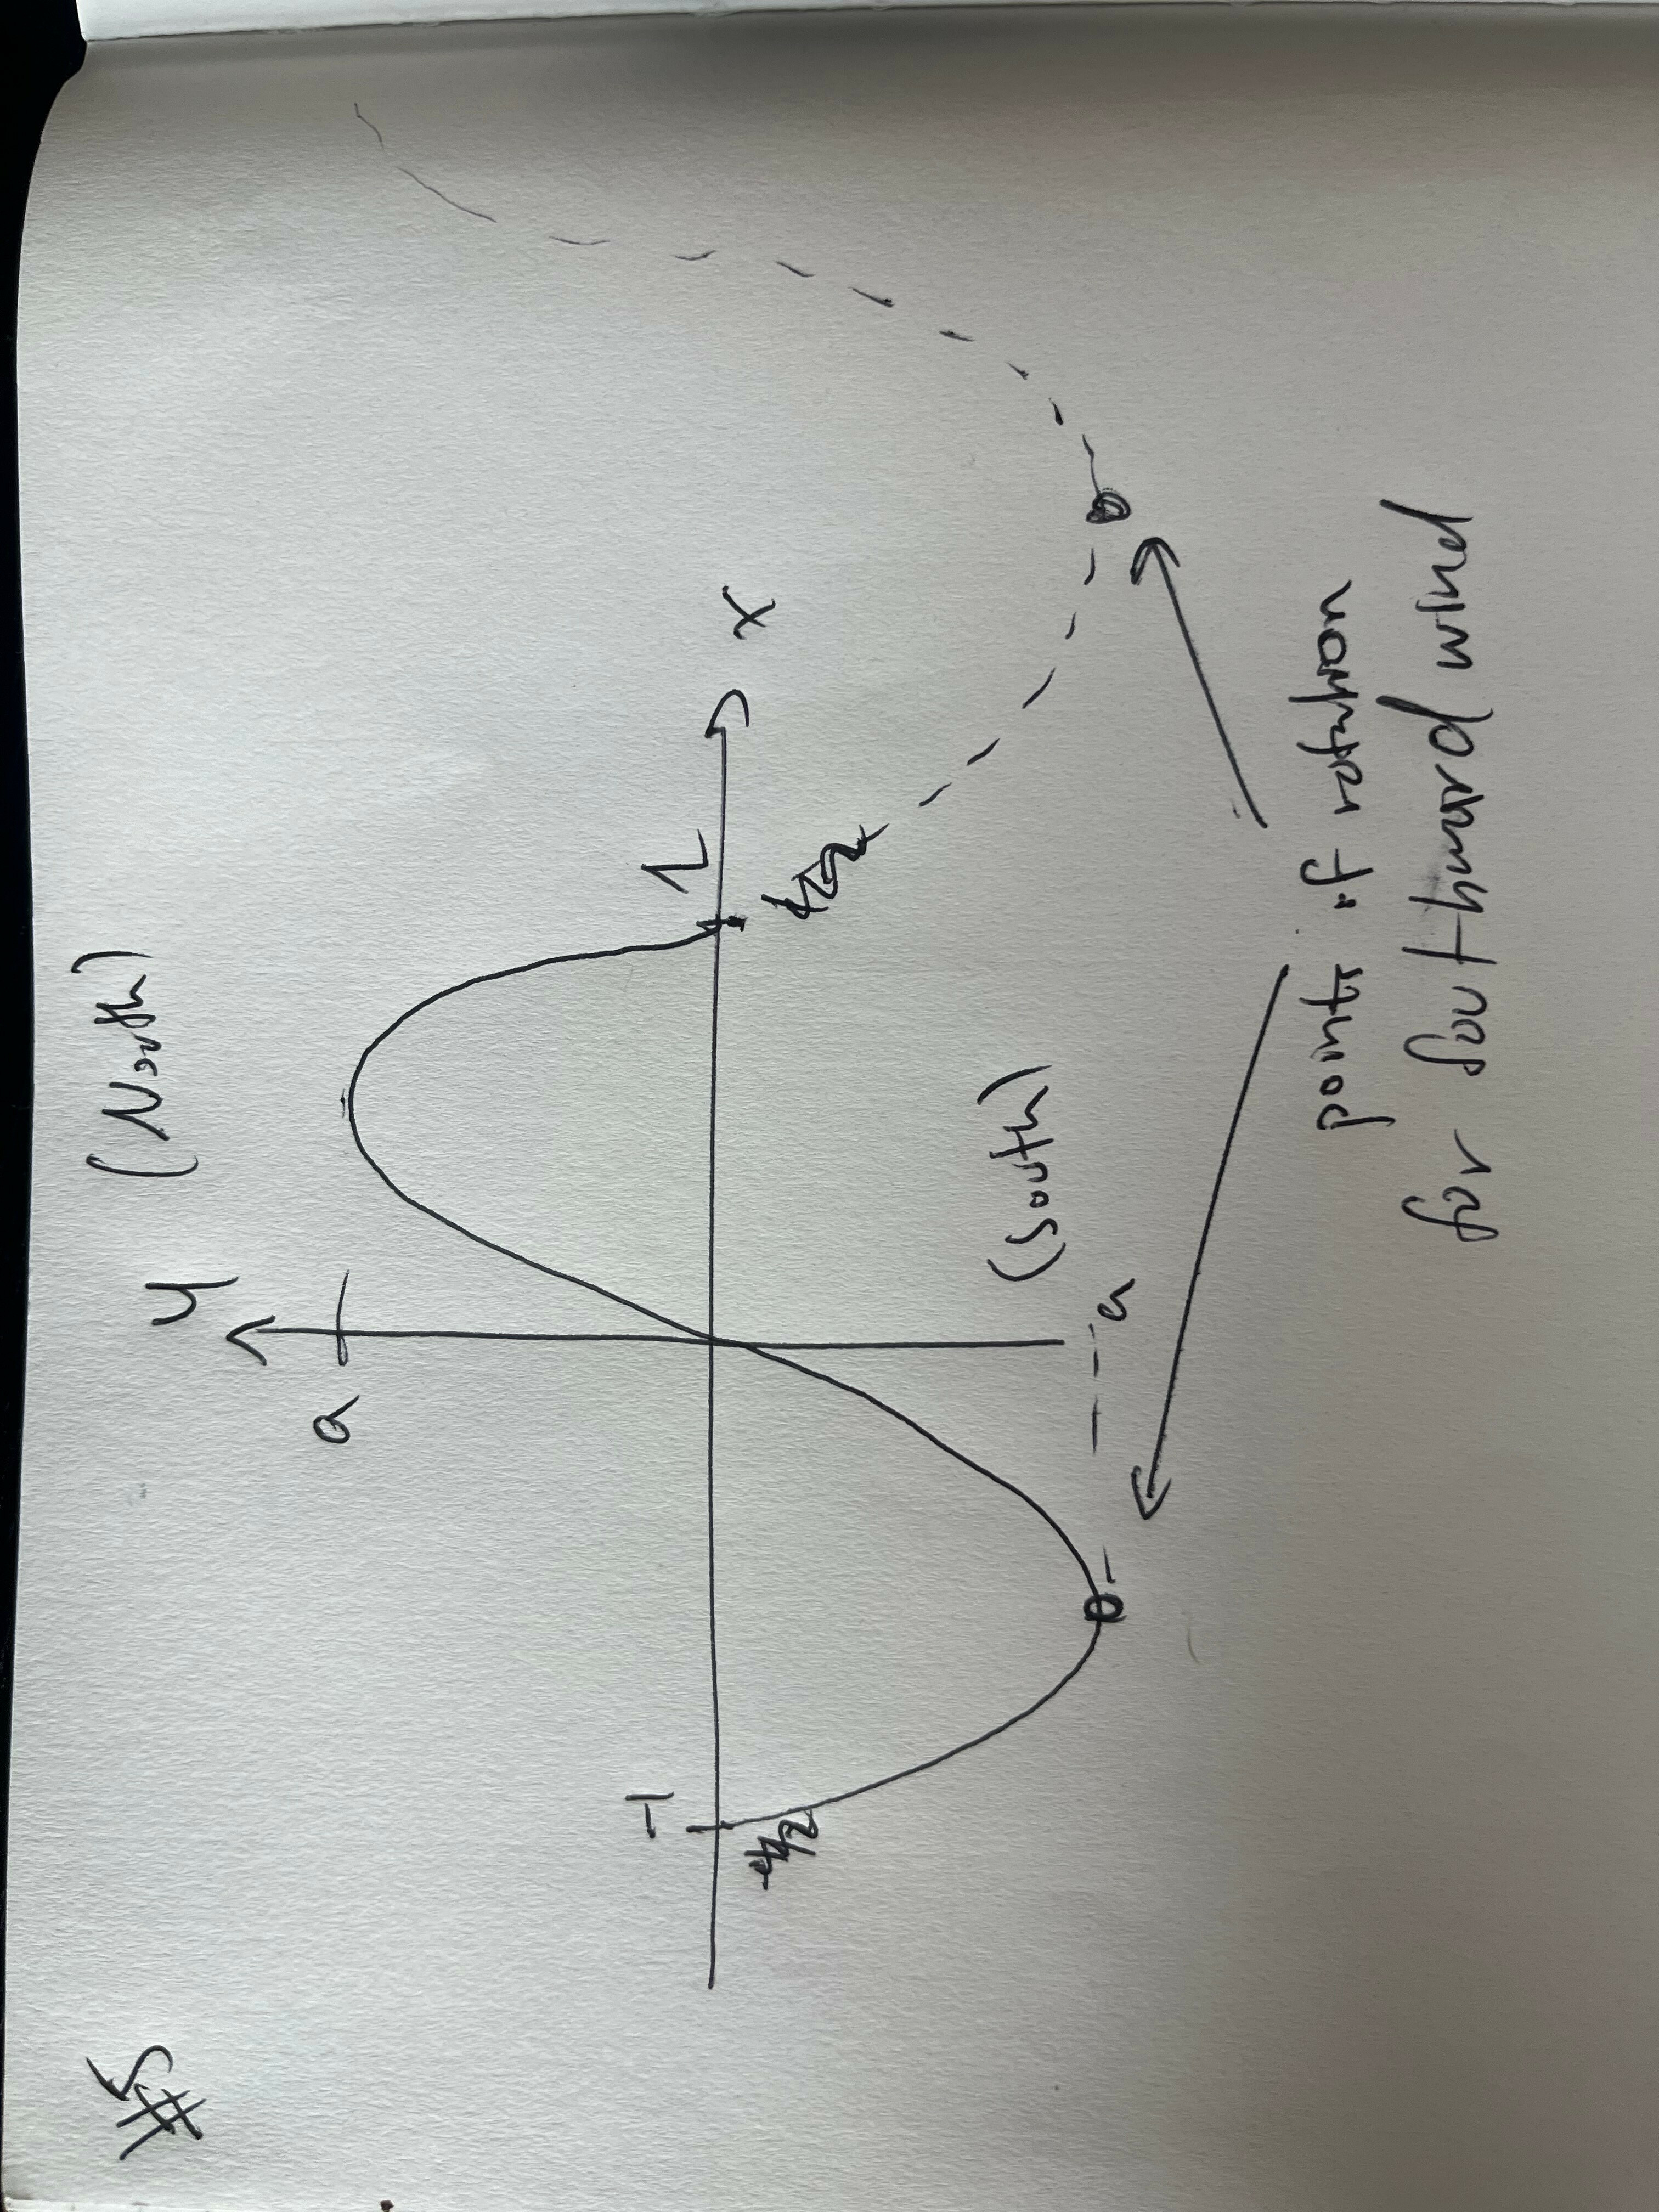 #5
(North)
y
a
-1
1
x
(South)
-a
points of rotation
for Southward wind